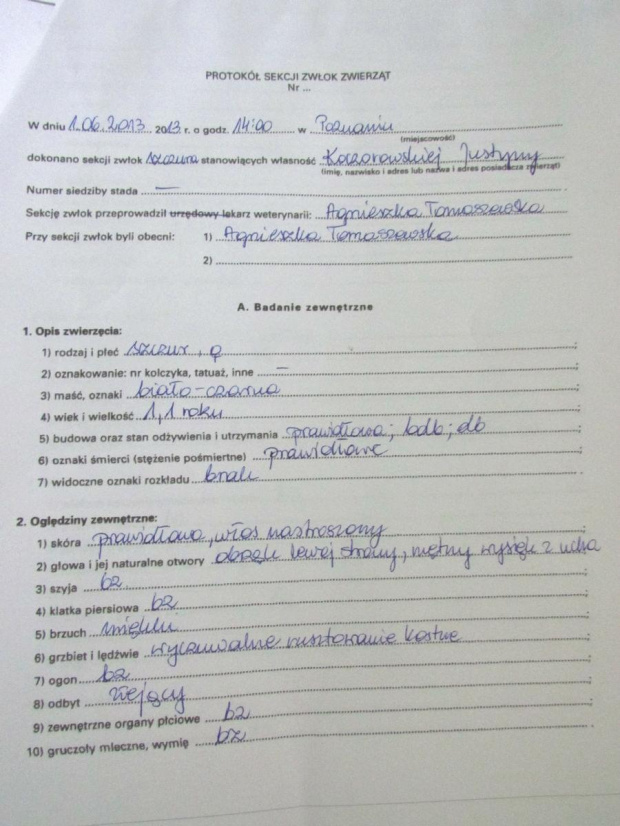 PROTOKÓŁ SEKCJI ZWŁOK ZWIERZĄT
Nr ...
W dniu 1.06.2013 2013 r. o godz. 14:00 w Poznaniu
(miejscowość)
dokonano sekcji zwłok szczura stanowiących własność Kozorowskiej Justyny
(imię, nazwisko i adres lub nazwa i adres posiadacza zwierząt)
Numer siedziby stada —
Sekcję zwłok przeprowadził urzędowy lekarz weterynarii: Agnieszka Tomaszewska
Przy sekcji zwłok byli obecni: 1) Agnieszka Tomaszewska
2)
A. Badanie zewnętrzne
1. Opis zwierzęcia:
1) rodzaj i płeć szczur, ♀
2) oznakowanie: nr kolczyka, tatuaż, inne —
3) maść, oznaki biało-czarna
4) wiek i wielkość 1,1 roku
5) budowa oraz stan odżywienia i utrzymania prawidłowa; bdb; db
6) oznaki śmierci (stężenie pośmiertne) prawidłowe
7) widoczne oznaki rozkładu brak
2. Oględziny zewnętrzne:
1) skóra prawidłowa, włos nastroszony
2) głowa i jej naturalne otwory obrzęk lewej strony, mętny wysięk z ucha
3) szyja bz
4) klatka piersiowa bz
5) brzuch miękki
6) grzbiet i lędźwie wyczuwalne rusztowanie kostne
7) ogon bz
8) odbyt ziejący
9) zewnętrzne organy płciowe bz
10) gruczoły mleczne, wymię bz